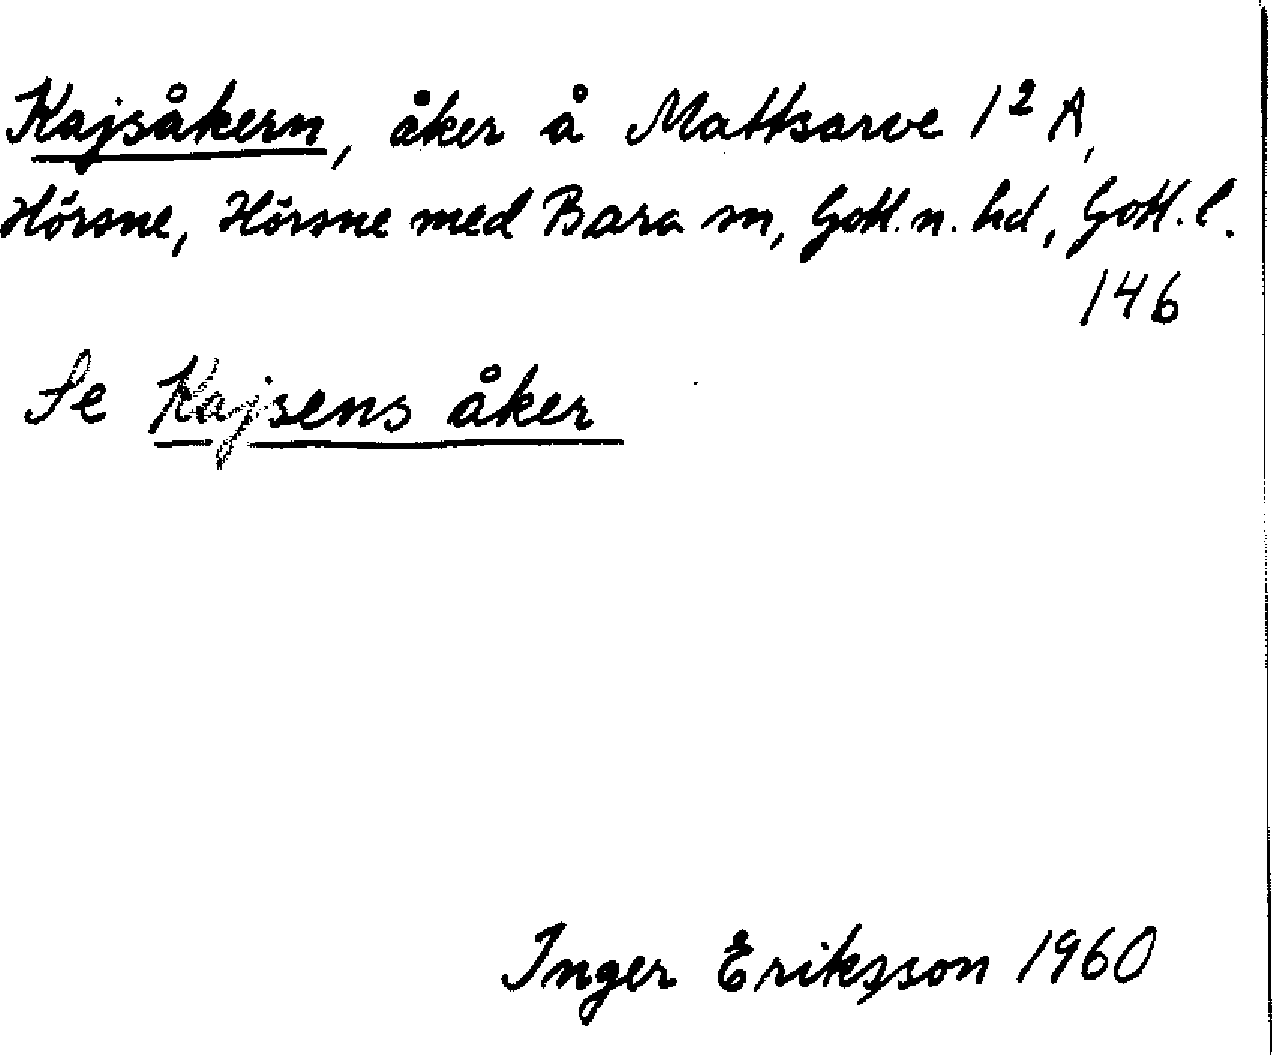 Kajsåkern, åker å Mattsarve 1² A,
Hörsne, Hörsne med Bara sn, Gotl. n. hd, Gotl. l.
146
Se Kajsens åker
Inger Eriksson 1960